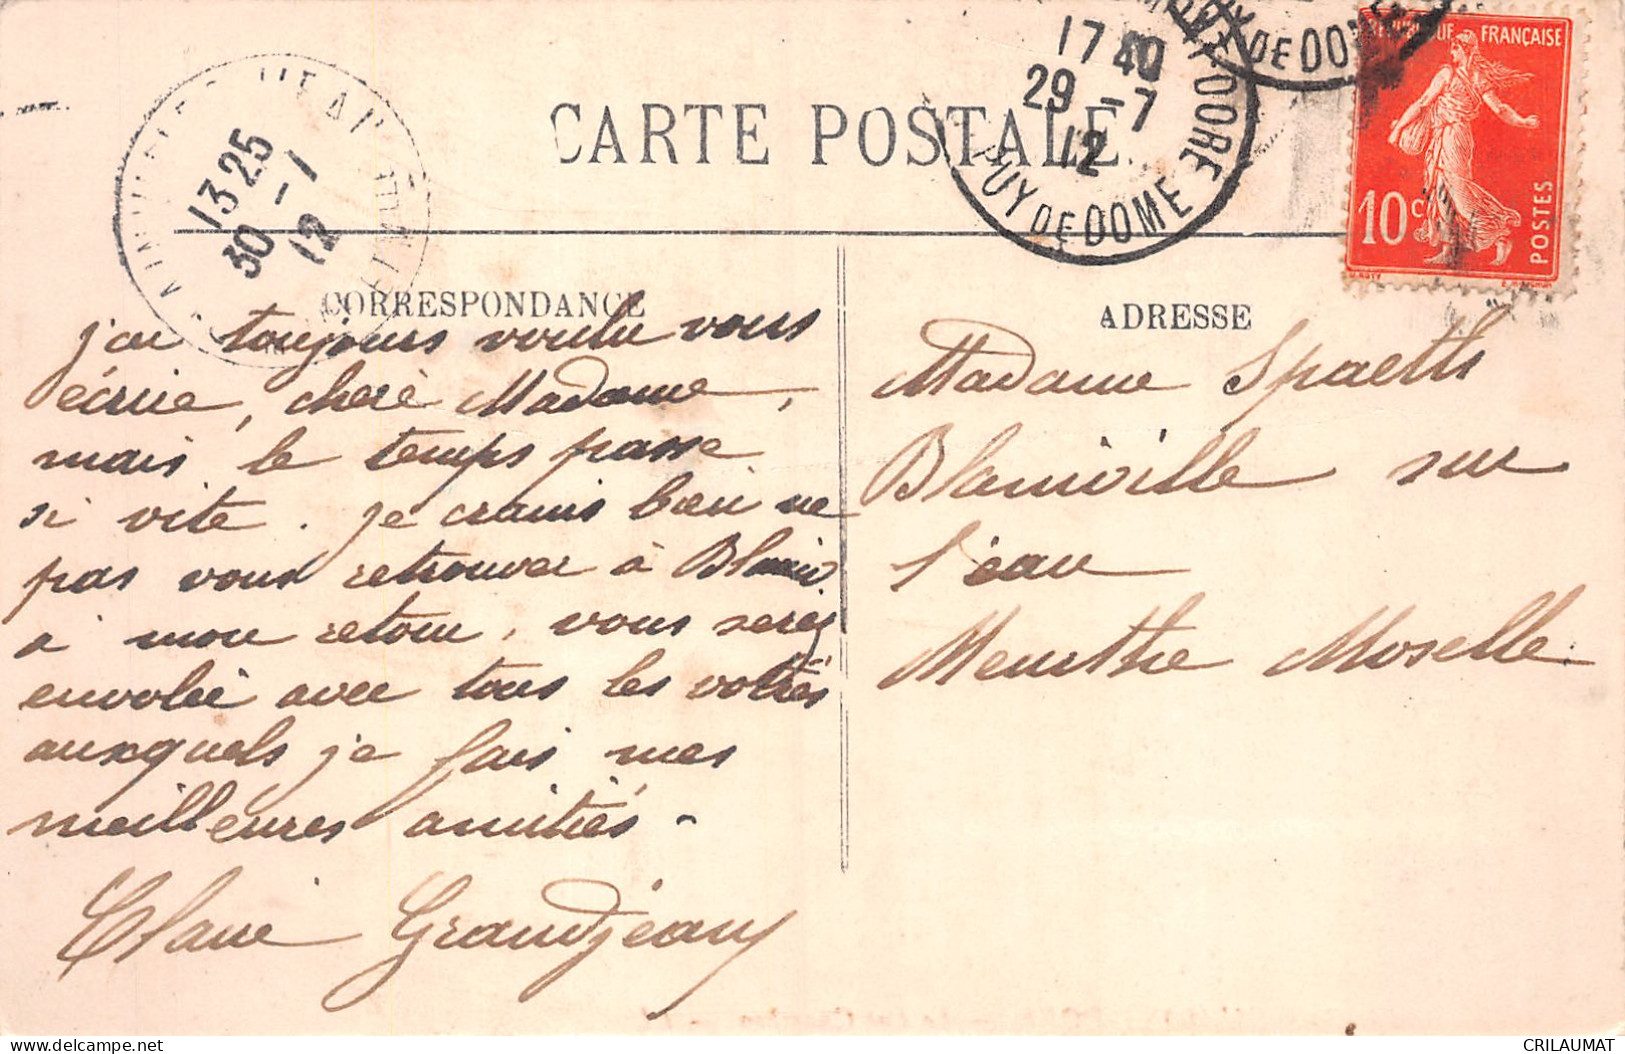 CARTE POSTALE
17 40
29 - 7
12
PUY DE DOME
MONT-DORE
PUY DE DOME
REPUBLIQUE FRANÇAISE
10 c
POSTES
13 25
30 - 7
12
CORRESPONDANCE
ADRESSE
j'ai toujours voulu vous
écrire, chere Madame,
mais le temps passe
si vite. je crains bien ne
pas vous retrouver à Blainv
à mon retour, vous serez
envolée avec tous les votres
auxquels je fais mes
meilleures amitiés -
Claire Grandjean
Madame Spaeth
Blainville sur
l'eau
Meurthe Moselle.
CRILAUMAT